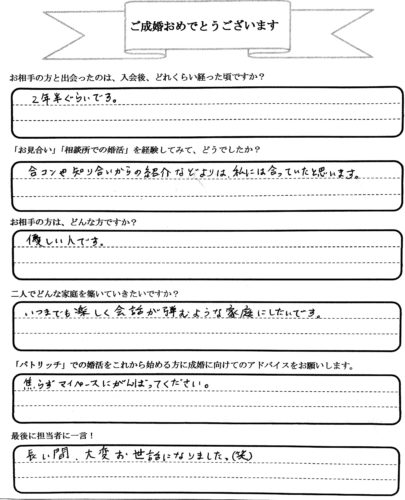 ご成婚おめでとうございます
お相手の方と出会ったのは、入会後、どれくらい経った頃ですか？
2年半ぐらいです。
「お見合い」「相談所での婚活」を経験してみて、どうでしたか？
合コンや知り合いからの紹介などよりは、私には合っていたと思います。
お相手の方は、どんな方ですか？
優しい人です。
二人でどんな家庭を築いていきたいですか？
いつまでも楽しく会話が弾むような家庭にしたいです。
「パトリッチ」での婚活をこれから始める方に成婚に向けてのアドバイスをお願いします。
焦らずマイペースにがんばってください。
最後に担当者に一言！
長い間、大変お世話になりました。(笑)